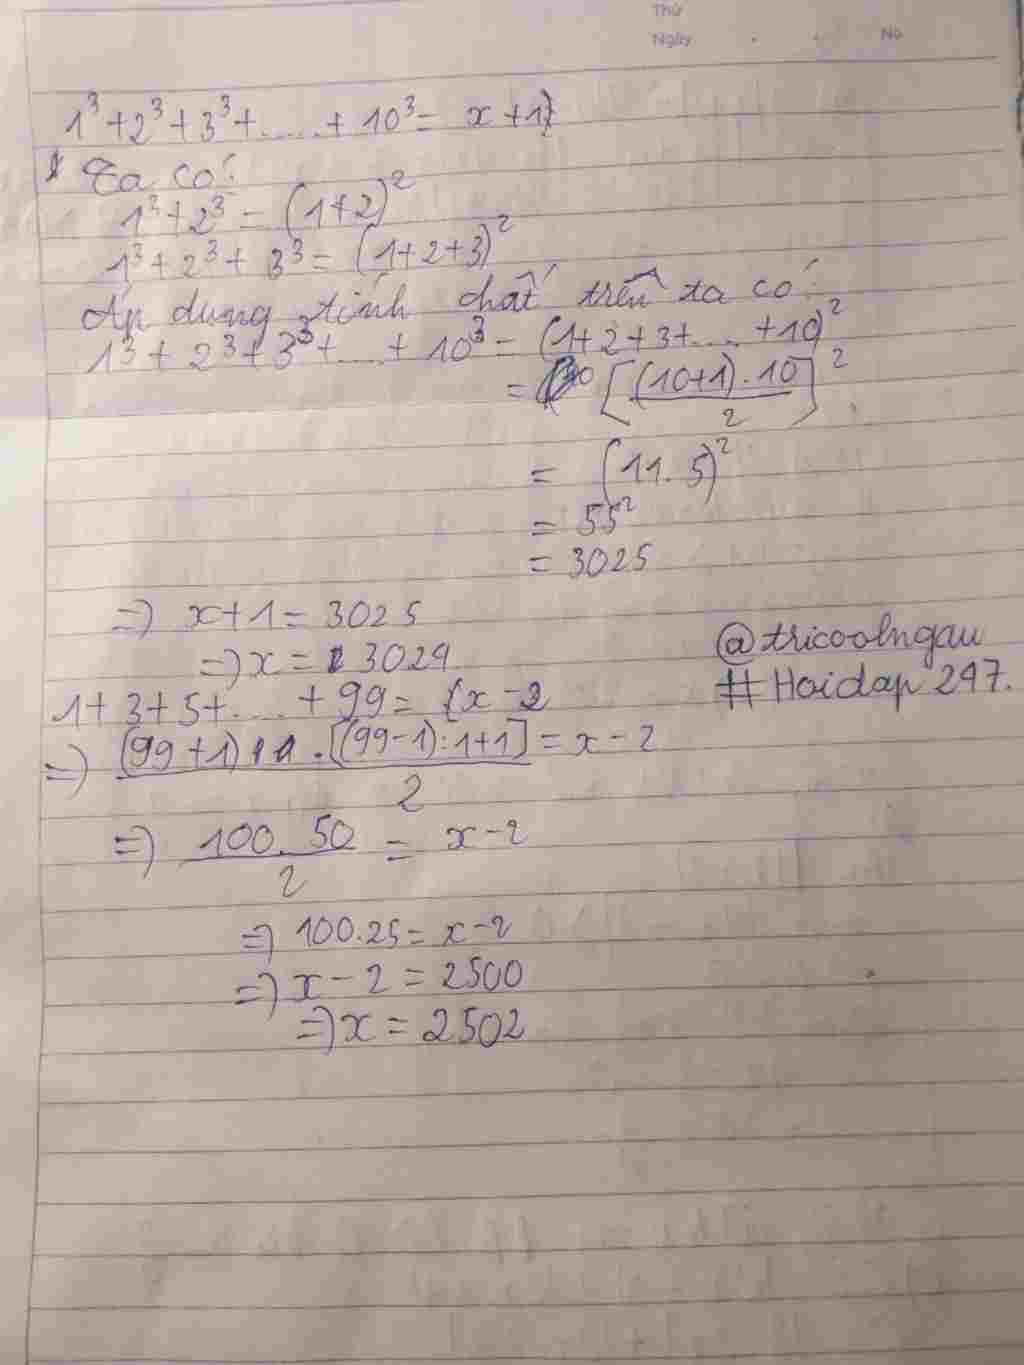 Thứ
Ngày . . No
1³ + 2³ + 3³ + ..... + 10³ = x + 1
Ta có:
1³ + 2³ = (1+2)²
1³ + 2³ + 3³ = (1+2+3)²
Áp dụng tính chất trên ta có:
1³ + 2³ + 3³ + .... + 10³ = (1+2+3+.... +10)²
= [(10+1).10 / 2]²
= (11.5)²
= 55²
= 3025
=> x+1 = 3025
=> x = 3024
@tricoolngau
#Hoidap 247.
1+3+5+.... +99 = x - 2
=> (99+1) . [(99-1):1+1] / 2 = x - 2
=> 100.50 / 2 = x - 2
=> 100.25 = x - 2
=> x - 2 = 2500
=> x = 2502